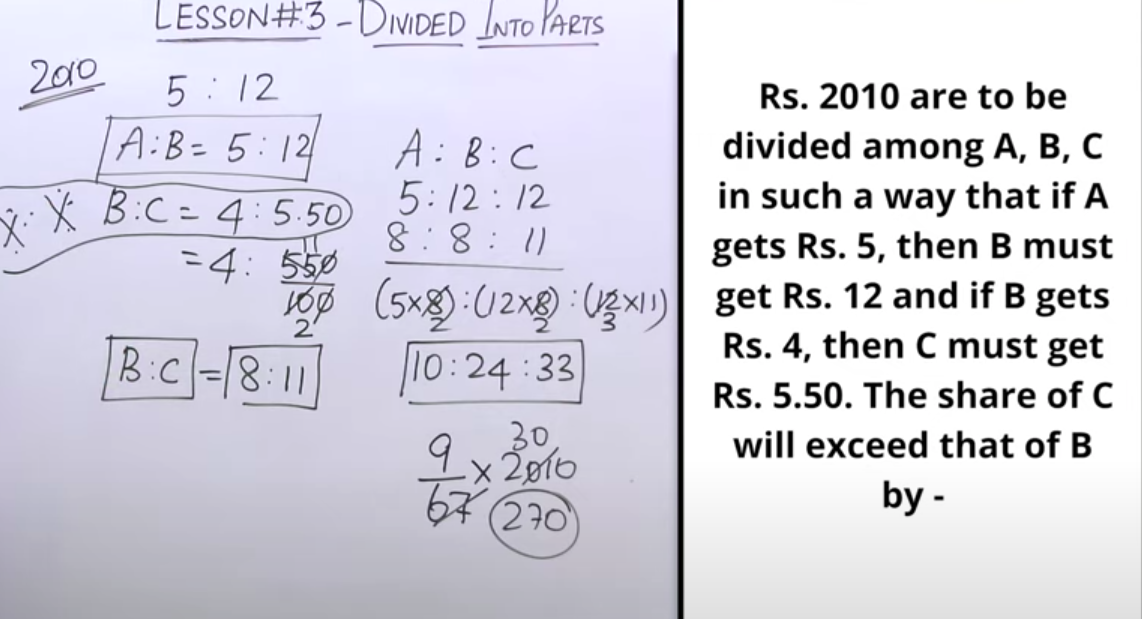 LESSON#3 - DIVIDED INTO PARTS
2010
5 : 12
A:B= 5:12
B:C = 4:5.50
=4: 550
100
11
2
B:C = 8:11
A: B:C
5:12:12
8:8: 11
(5×8):(12×8):(12×11)
2 2 3
10:24:33
9
67
× 2010
30
270
Rs. 2010 are to be
divided among A, B, C
in such a way that if A
gets Rs. 5, then B must
get Rs. 12 and if B gets
Rs. 4, then C must get
Rs. 5.50. The share of C
will exceed that of B
by -